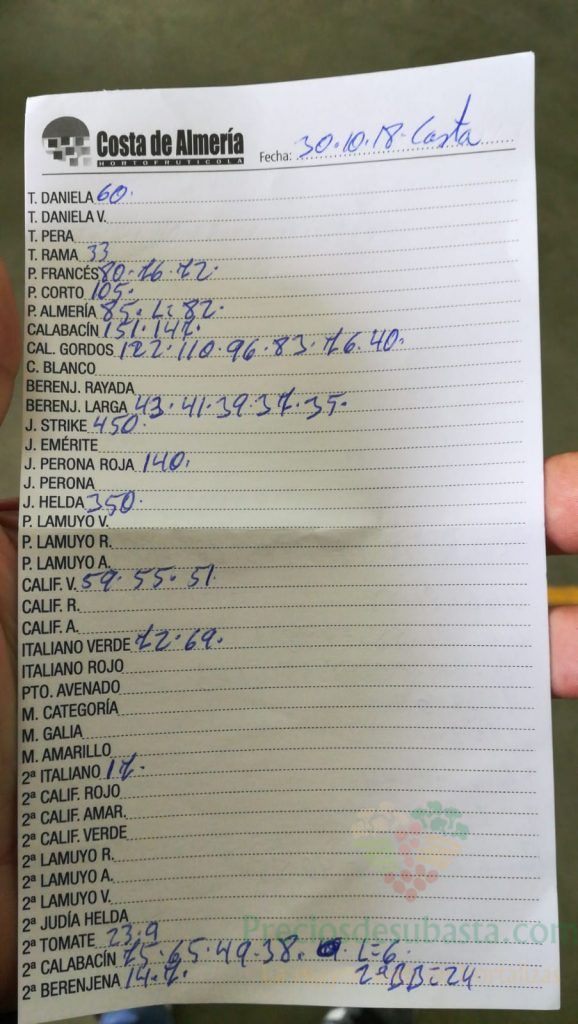 Costa de Almería
HORTOFRUTICOLA
Fecha: 30.10.18 Costa
T. DANIELA 60.
T. DANIELA V.
T. PERA
T. RAMA 33
P. FRANCÉS 80.76.72.
P. CORTO 105.
P. ALMERÍA 85. L: 82.
CALABACÍN 151.147.
CAL. GORDOS 122.110.96.83.76.40.
C. BLANCO
BERENJ. RAYADA
BERENJ. LARGA 43.41.39.37.35.
J. STRIKE 450.
J. EMÉRITE
J. PERONA ROJA 140.
J. PERONA
J. HELDA 350.
P. LAMUYO V.
P. LAMUYO R.
P. LAMUYO A.
CALIF. V. 59.55.51.
CALIF. R.
CALIF. A.
ITALIANO VERDE 72.69.
ITALIANO ROJO
PTO. AVENADO
M. CATEGORÍA
M. GALIA
M. AMARILLO
2ª ITALIANO 17.
2ª CALIF. ROJO
2ª CALIF. AMAR.
2ª CALIF. VERDE
2ª LAMUYO R.
2ª LAMUYO A.
2ª LAMUYO V.
2ª JUDÍA HELDA
2ª TOMATE 23.9
2ª CALABACÍN 75.65.49.38. L=6.
2ª BERENJENA 14.7. 2ªBB=24
Preciosdesubasta.com